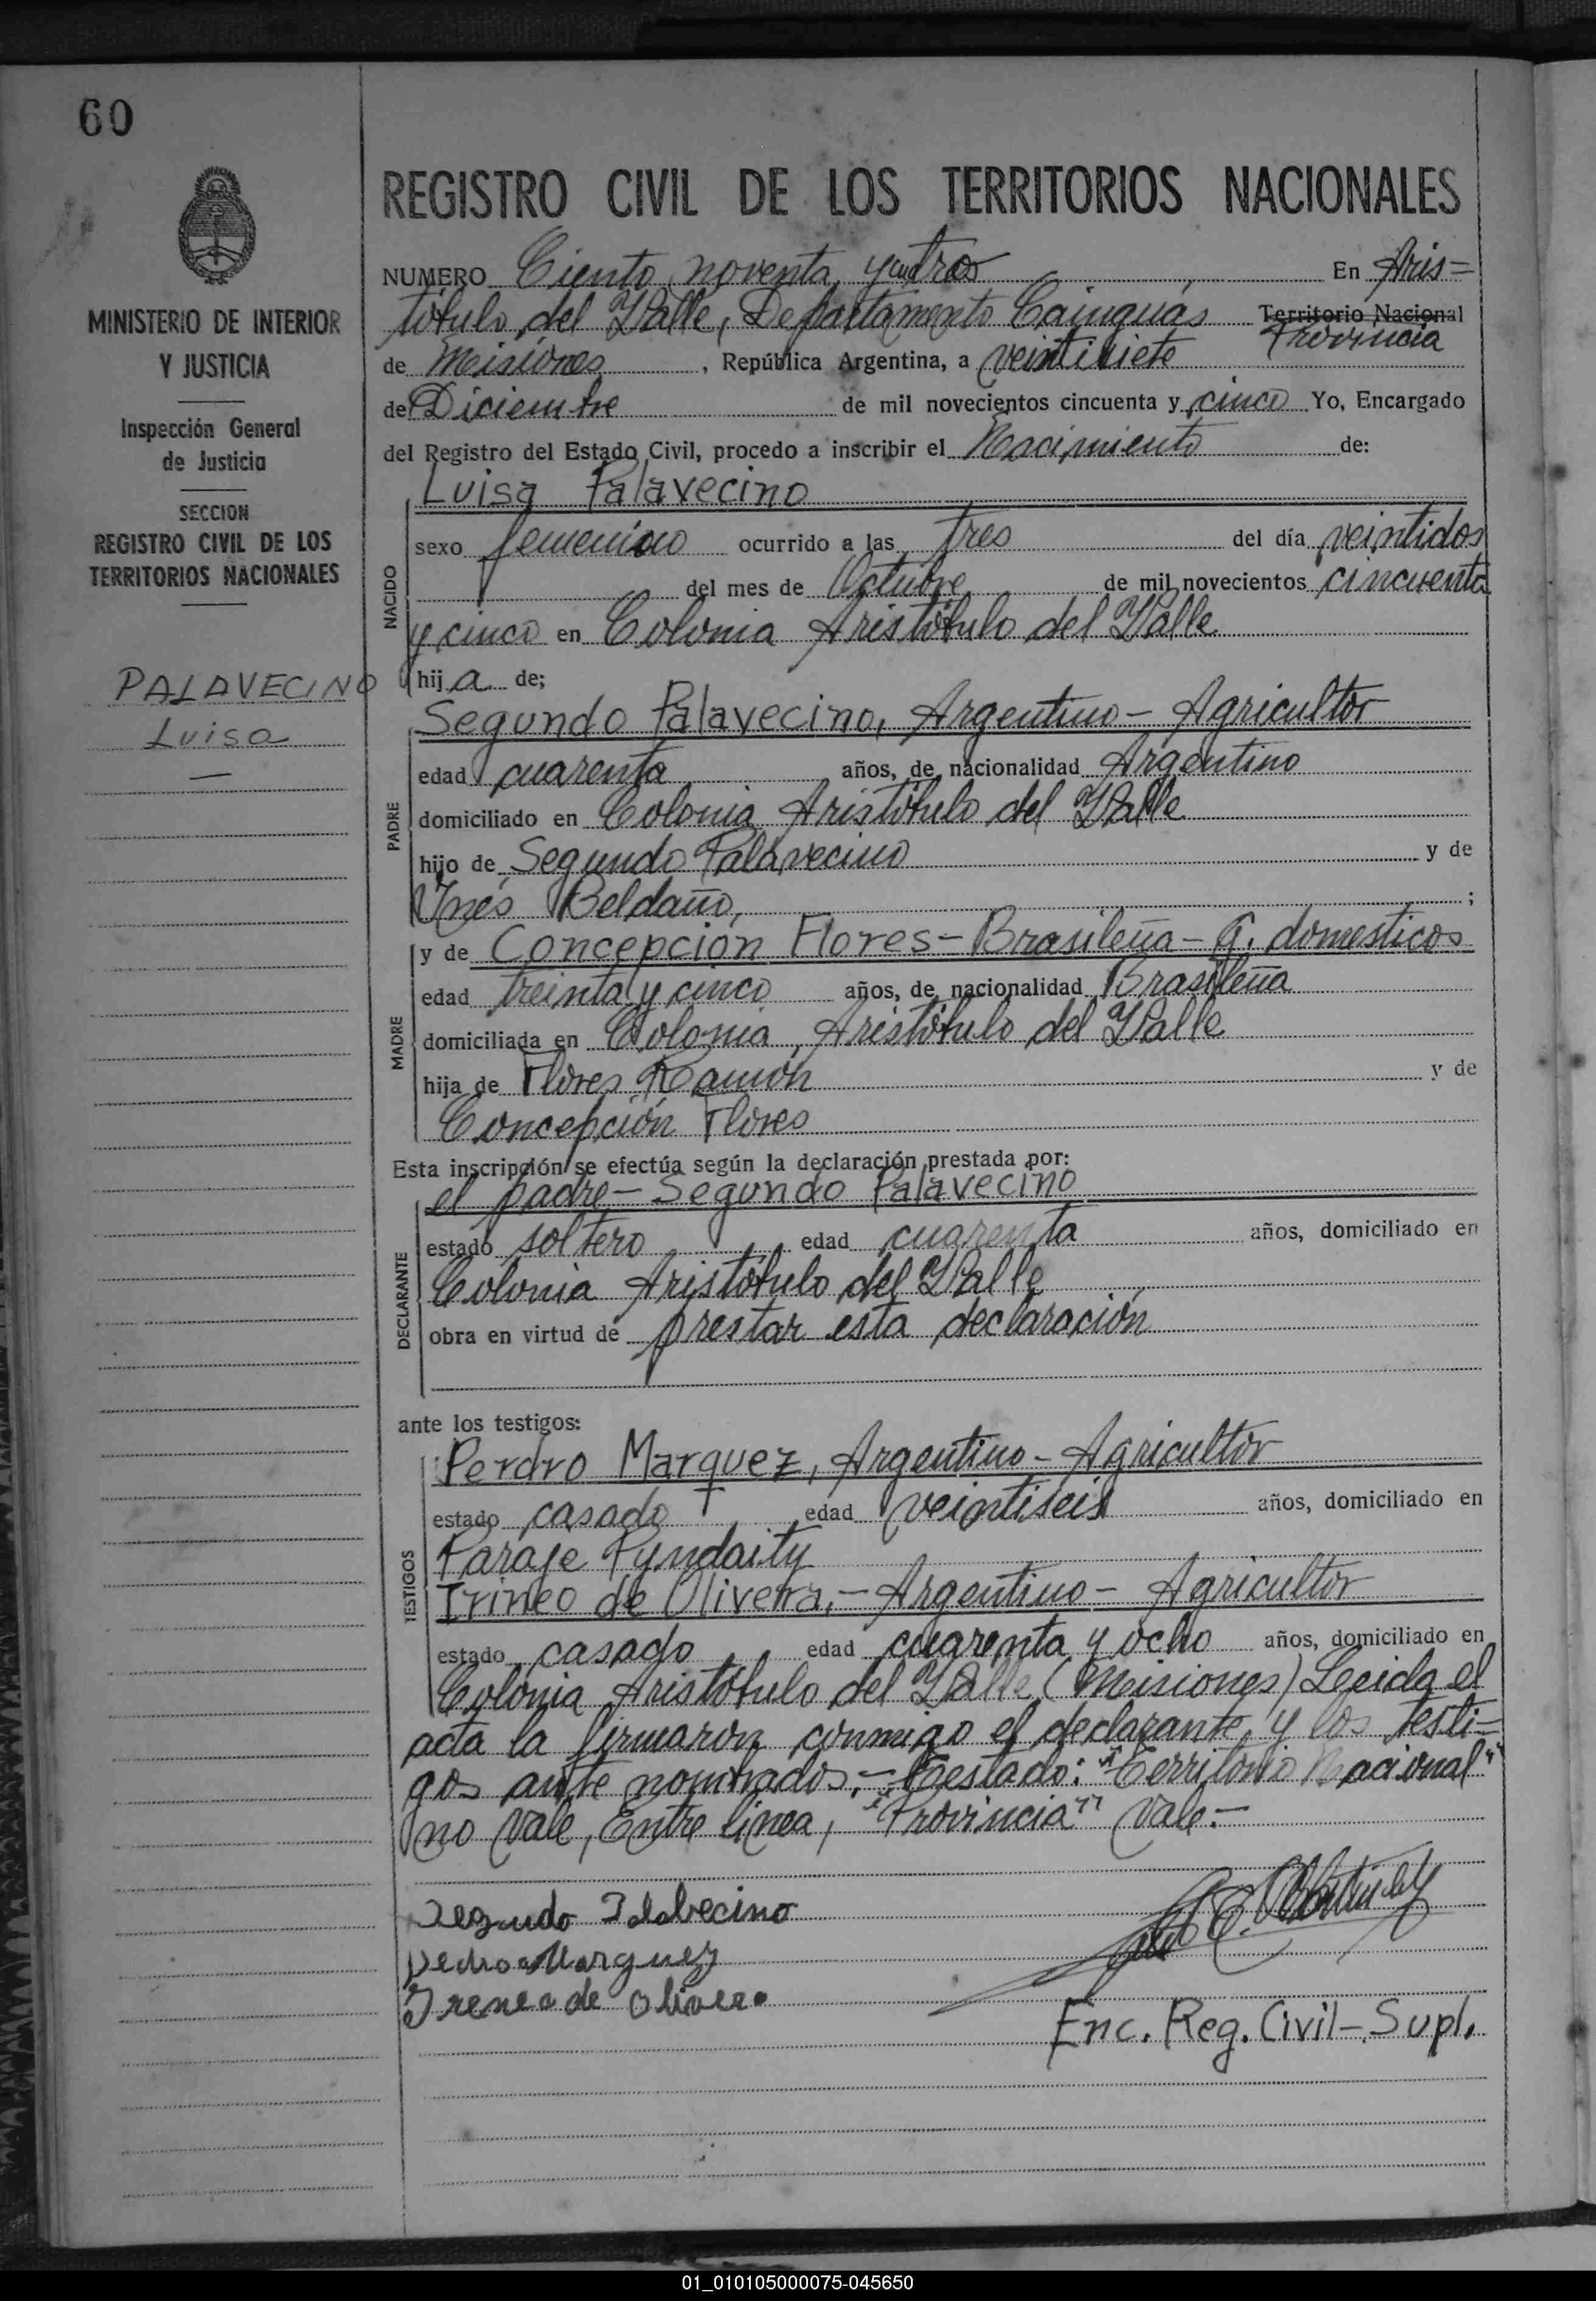 60
REGISTRO CIVIL DE LOS TERRITORIOS NACIONALES
MINISTERIO DE INTERIOR
Y JUSTICIA
Inspección General
de Justicia
SECCION
REGISTRO CIVIL DE LOS
TERRITORIOS NACIONALES
PALAVECINO
Luisa
NUMERO Ciento noventa y cuatro En Aris=
tóbulo del Valle, Departamento Cainguás Territorio Nacional
Provincia
de Misiones, República Argentina, a veintisiete
de Diciembre de mil novecientos cincuenta y cinco Yo, Encargado
del Registro del Estado Civil, procedo a inscribir el Nacimiento de:
Luisa Palavecino
NACIDO
sexo femenino ocurrido a las tres del día veintidos
del mes de Octubre de mil novecientos cincuenta
y cinco en Colonia Aristóbulo del Valle
hij a de;
Segundo Palavecino, Argentino - Agricultor
PADRE
edad cuarenta años, de nacionalidad Argentino
domiciliado en Colonia Aristóbulo del Valle
hijo de Segundo Palavecino y de
Ynés Beldaño, ;
y de Concepción Flores - Brasileña - Q. domesticos
MADRE
edad treinta y cinco años, de nacionalidad Brasileña
domiciliada en Colonia Aristóbulo del Valle
hija de Flores Ramón y de
Concepción Flores
Esta inscripción se efectúa según la declaración prestada por:
el padre - Segundo Palavecino
DECLARANTE
estado soltero edad cuarenta años, domiciliado en
Colonia Aristóbulo del Valle
obra en virtud de prestar esta declaración
ante los testigos:
Perdro Marquez, Argentino - Agricultor
TESTIGOS
estado casado edad veintiseis años, domiciliado en
Paraje Pyndaity
Irineo de Oliveira, - Argentino - Agricultor
estado casado edad cuarenta y ocho años, domiciliado en
Colonia Aristóbulo del Valle (Misiones) Leida el
acta la firmaron conmigo el declarante y los testi=
gos ante nombrados. - Testado: "Territorio Nacional"
no vale, Entre linea, "Provincia" Vale. -
Segundo Palabecino
Pedro Marquez
Ireneo de Olivera
Enc. Reg. Civil - Supl.
01_010105000075-045650